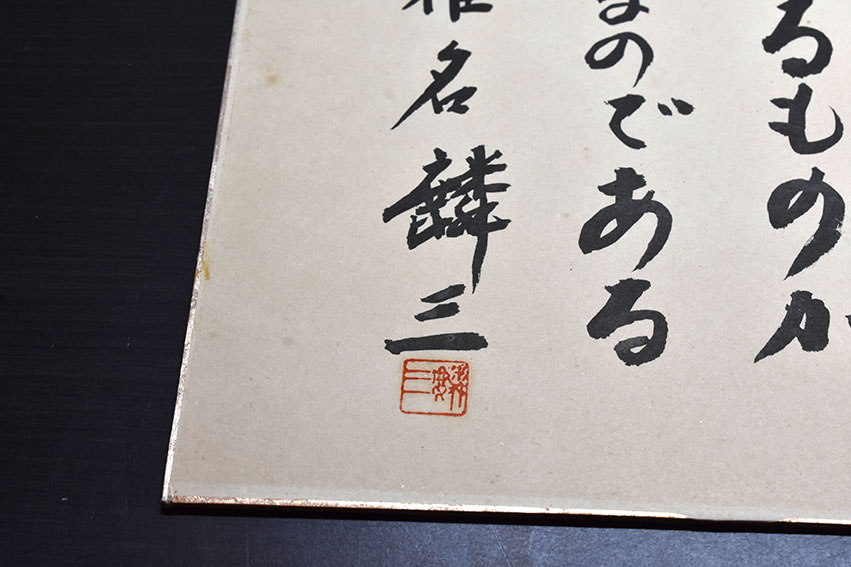 るものが
まのである
椎名麟三